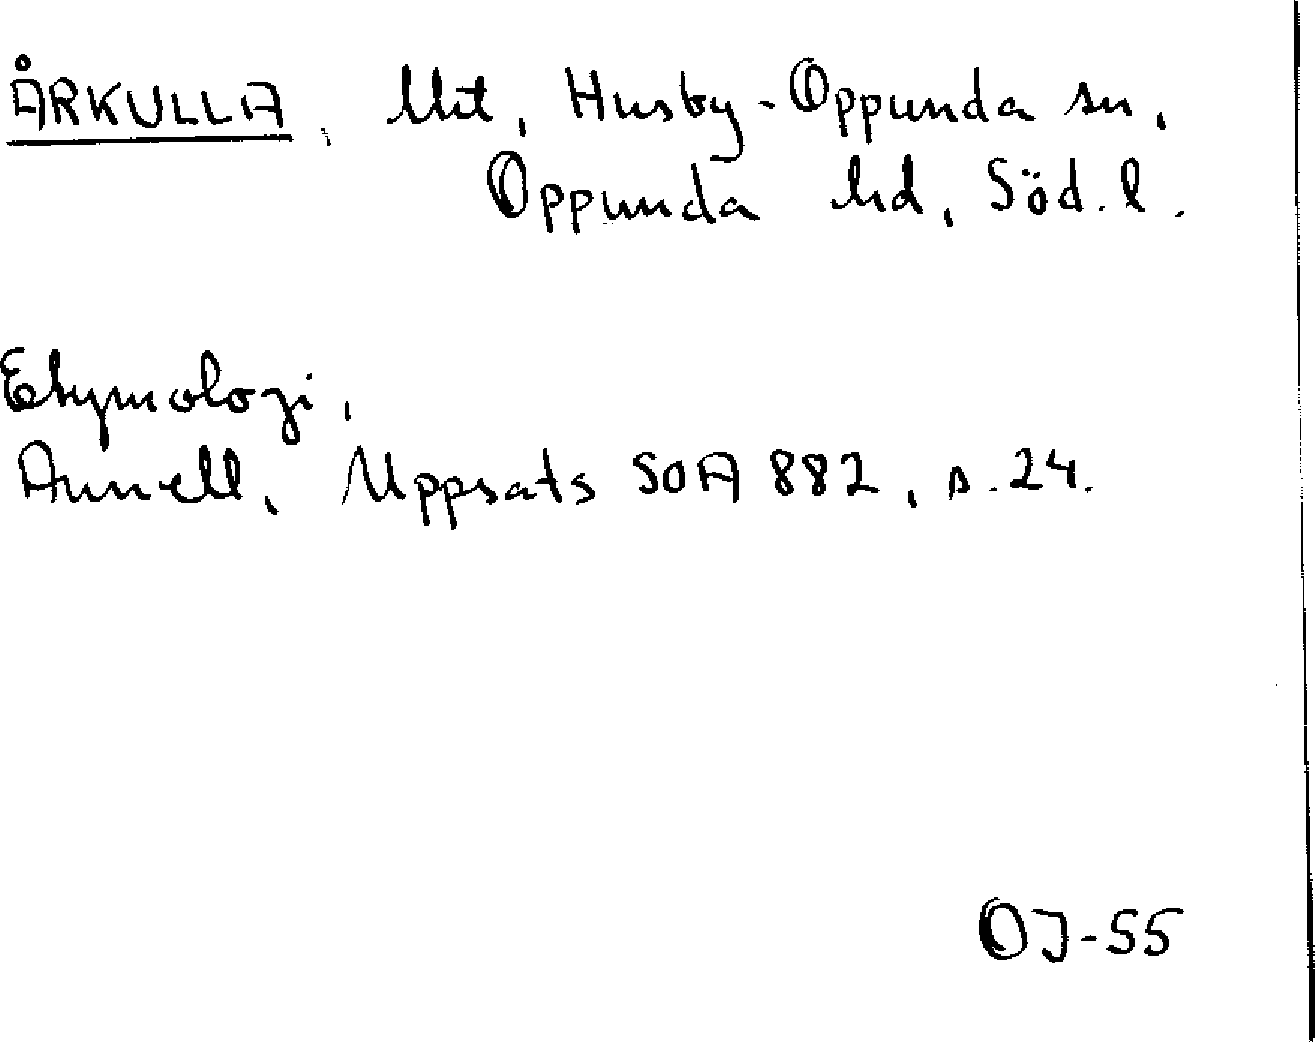 ÅRKULLA, lht, Husby-Oppunda sn,
Oppunda hd, Söd. l.
Etymologi,
Annell, Uppsats SOA 882, s. 24.
OJ-55